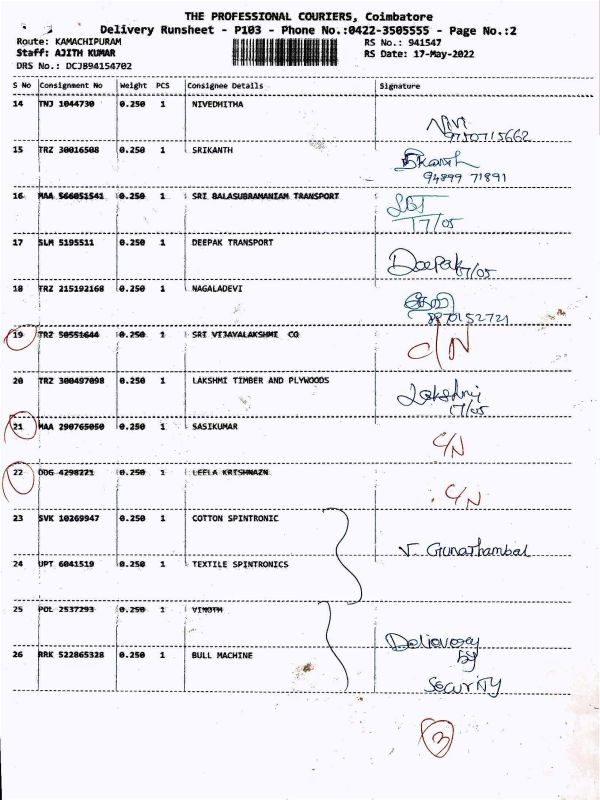 THE PROFESSIONAL COURIERS, Coimbatore
Delivery Runsheet - P103 - Phone No.:0422-3505555 - Page No.:2
Route: KAMACHIPURAM RS No.: 941547
Staff: AJITH KUMAR RS Date: 17-May-2022
DRS No.: DCJB94154702
S No Consignment No Weight PCS Consignee Details Signature
14 TNJ 1044730 0.250 1 NIVEDHITHA
9750715662
15 TRZ 30016508 0.250 1 SRIKANTH
94899 71891
16 MAA 566051541 0.250 1 SRI BALASUBRAMANIAM TRANSPORT SBT
17/05
17 SLM 5195511 0.250 1 DEEPAK TRANSPORT Deepak 17/05
18 TRZ 215192168 0.250 1 NAGALADEVI
8870152721
19 TRZ 50551644 0.250 1 SRI VIJAYALAKSHMI CO C/N
20 TRZ 300497098 0.250 1 LAKSHMI TIMBER AND PLYWOODS Lakshmi
17/05
21 MAA 290765050 0.250 1 SASIKUMAR C/N
22 ODG 4298271 0.250 1 LEELA KRISHNAZN C/N
23 SVK 10269947 0.250 1 COTTON SPINTRONIC
V. Gunathambal
24 UPT 6041519 0.250 1 TEXTILE SPINTRONICS
25 POL 2537293 0.250 1 VINOTH
26 RRK 522865328 0.250 1 BULL MACHINE
by
Security
3